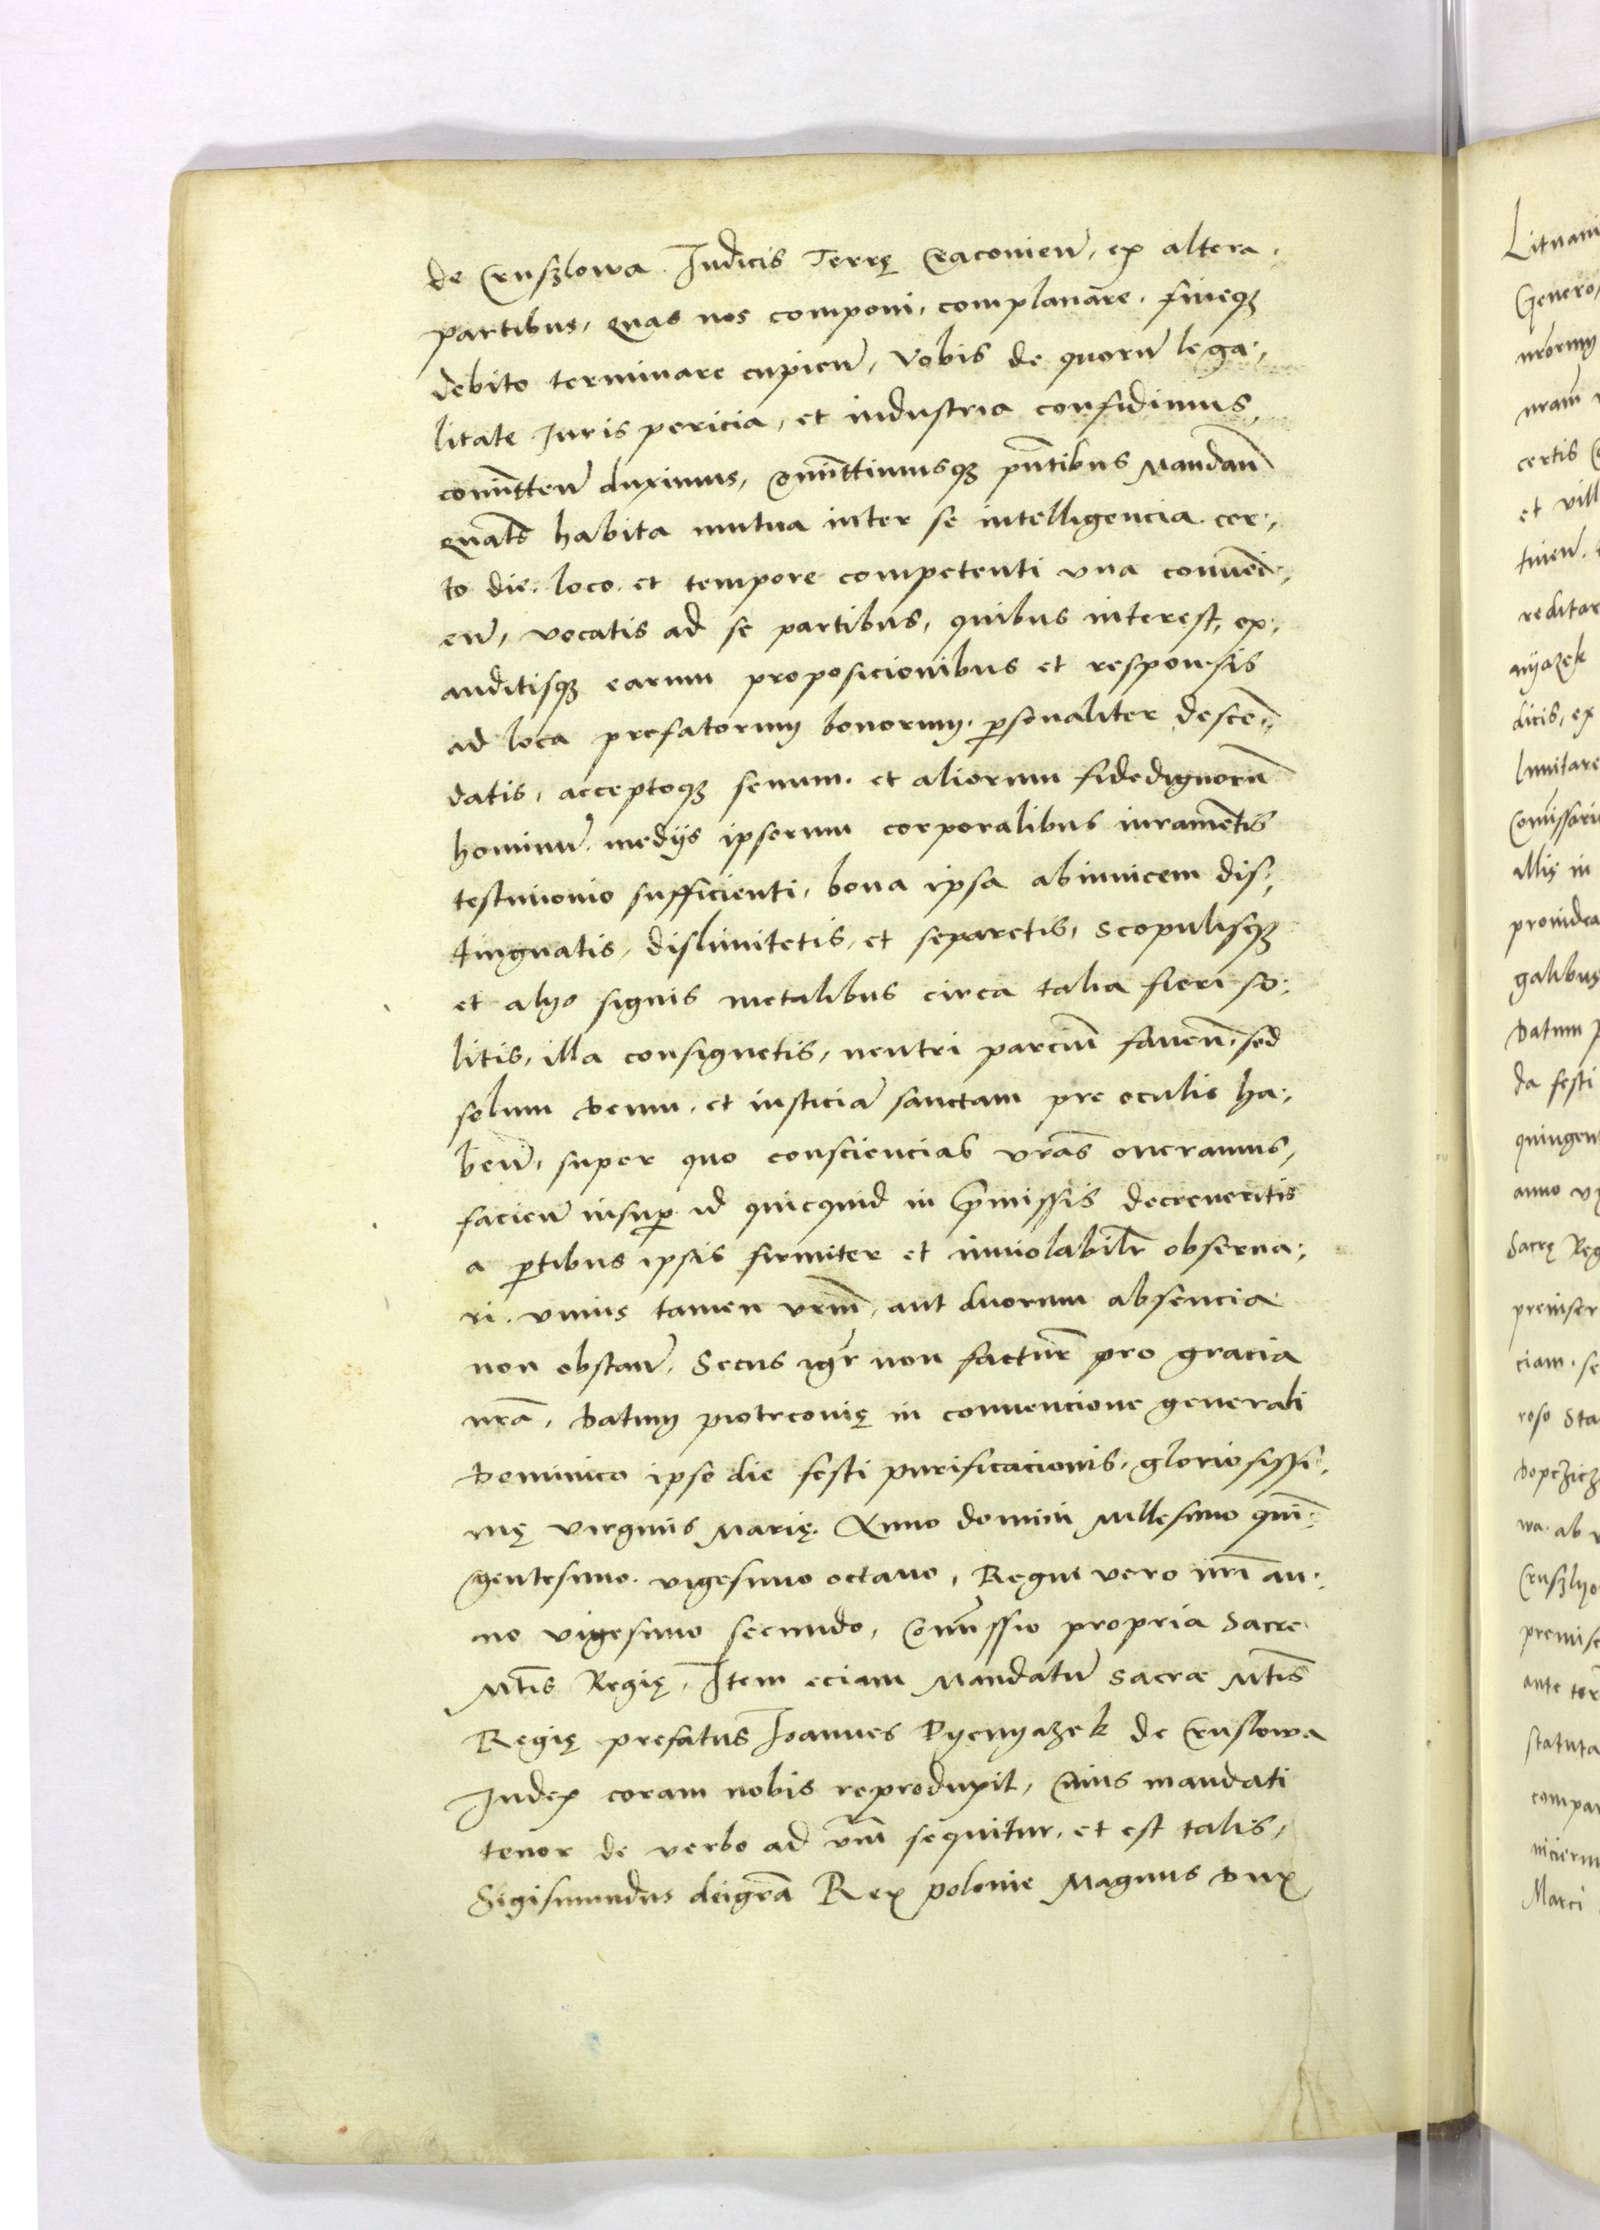 de Cruszlowa Judicis Terrę Cracovien̄, ex altera
partibus, quas nos componi, complanare, fineq3
debito terminare cupien̄, Vobis de quorū lega⸗
litate Juris pericia, et industria confidimus
com̄itten̄ duximus, Com̄ittimusq3 pn̄tibus Mandan̄
quat̄s habita mutua inter se intelligencia cer⸗
to die loco et tempore competenti vna conueni⸗
en̄, vocatis ad se partibus, quibus interest, ex⸗
auditisq3 earum proposicionibus et responsis
ad loca prefatorum bonorum personaliter descen̄⸗
datis, acceptoq3 senum et aliorum fidedignorū
hominū medijs ipsorum corporalibus iuramētis
testimonio sufficienti, bona ipsa abinuicem dis⸗
tinguatis, dislimitetis, et separetis, scopulisq3
et alijs signis metalibus circa talia fieri so⸗
litis, illa consignetis, neutri parciū faven̄, sed
solum Deum et iusticiā sanctam pre oculis ha⸗
ben̄, super quo consciencias vr̄as oneramus,
facien̄ insuꝑ id quicquid in p̄missis decreveritis
a ꝑtibus ipsis firmiter et inviolabilr̄ observa⸗
ri. vnius tamen vrm̄, aut duorum absencia
non obstan̄. Secus igr̄ non facturi pro gracia
nr̄a, Datum piotrcovię in convencione generali
Dominico ipso die festi purificacionis, gloriosissi⸗
mę virginis Marię. Anno domini Millesimo quin̄⸗
gentesimo vigesimo octavo, Regni vero nr̄i an⸗
no vigesimo secundo, Com̄issio propria Sacre
Mt̄is Regię, Item eciam Mandatū Sacræ Mt̄is
Regię prefatus Joannes Pyenyazek de Cruslowa
Judex coram nobis reproduxit, Cuius mandati
tenor de verbo ad vm̄ sequitur, et est talis,
Sigismundus deigr̄a Rex polonie Magnus Dux
Lituani
Genero
nr̄orum
nram̄
certis
et vill
tinen̄
reditar
nyazek
dicis, ex
limitare
Com̄issari
illis in
providea
galibus
Datum p
da festi
quingen
anno vi
Sacrę Reg
preinser
ciam. se
roso Sta
wa. ab
premis
ante ter
statuta
compar
Marci